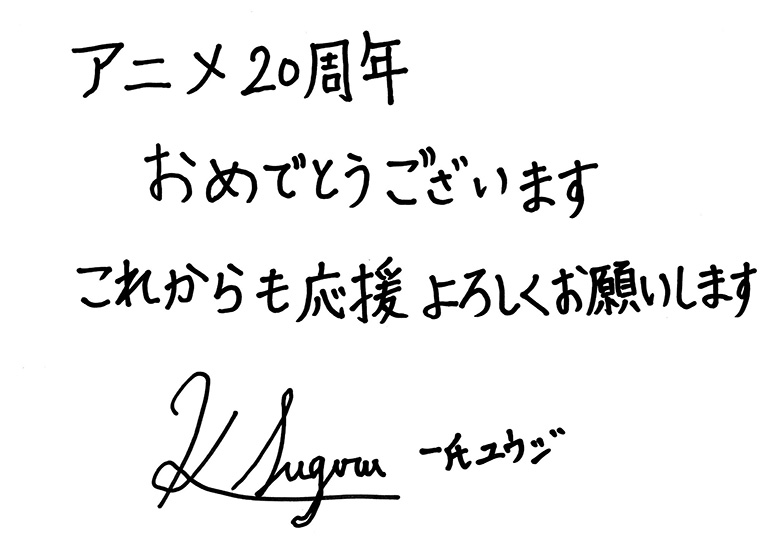 アニメ20周年
おめでとうございます
これからも応援よろしくお願いします
K Suguru 一氏ユウジ